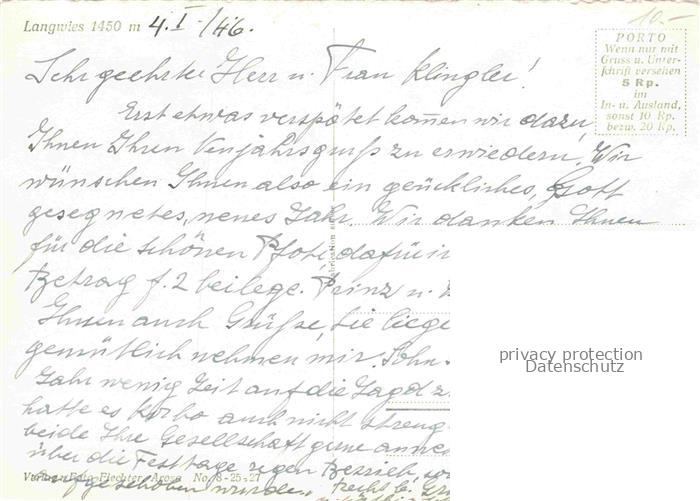 Langwies 1450 m 4.I./46.
10.–
PORTO
Wenn nur mit
Gruss u. Unter-
schrift versehen
5 Rp.
im
In- u. Ausland,
sonst 10 Rp.
bezw. 20 Rp.
Sehr geehrter Herr u. Frau Klingler!
Erst etwas verspätet kom̄en wir dazu,
Ihnen Ihren Neujahrsgruß zu erwiedern. Wir
wünschen Ihnen also ein glückliches, Gott
gesegnetes, neues Jahr. Wir danken Ihnen
für die schönen Photo, dafür
Betrag f. 2 beilege. Prinz u.
Ihnen auch Grüße, sie liege
gemütlich nehmen mir. Sohn
Jahr wenig Zeit auf die Jagd
hatte es auch nicht streng
beide Ihre Gesellschaft gerne
über die Festtage regen Betrieb
aufgeschoben wurde.
Verlag Foto Fiechter, Arosa No. 8-25-27
privacy protection
Datenschutz